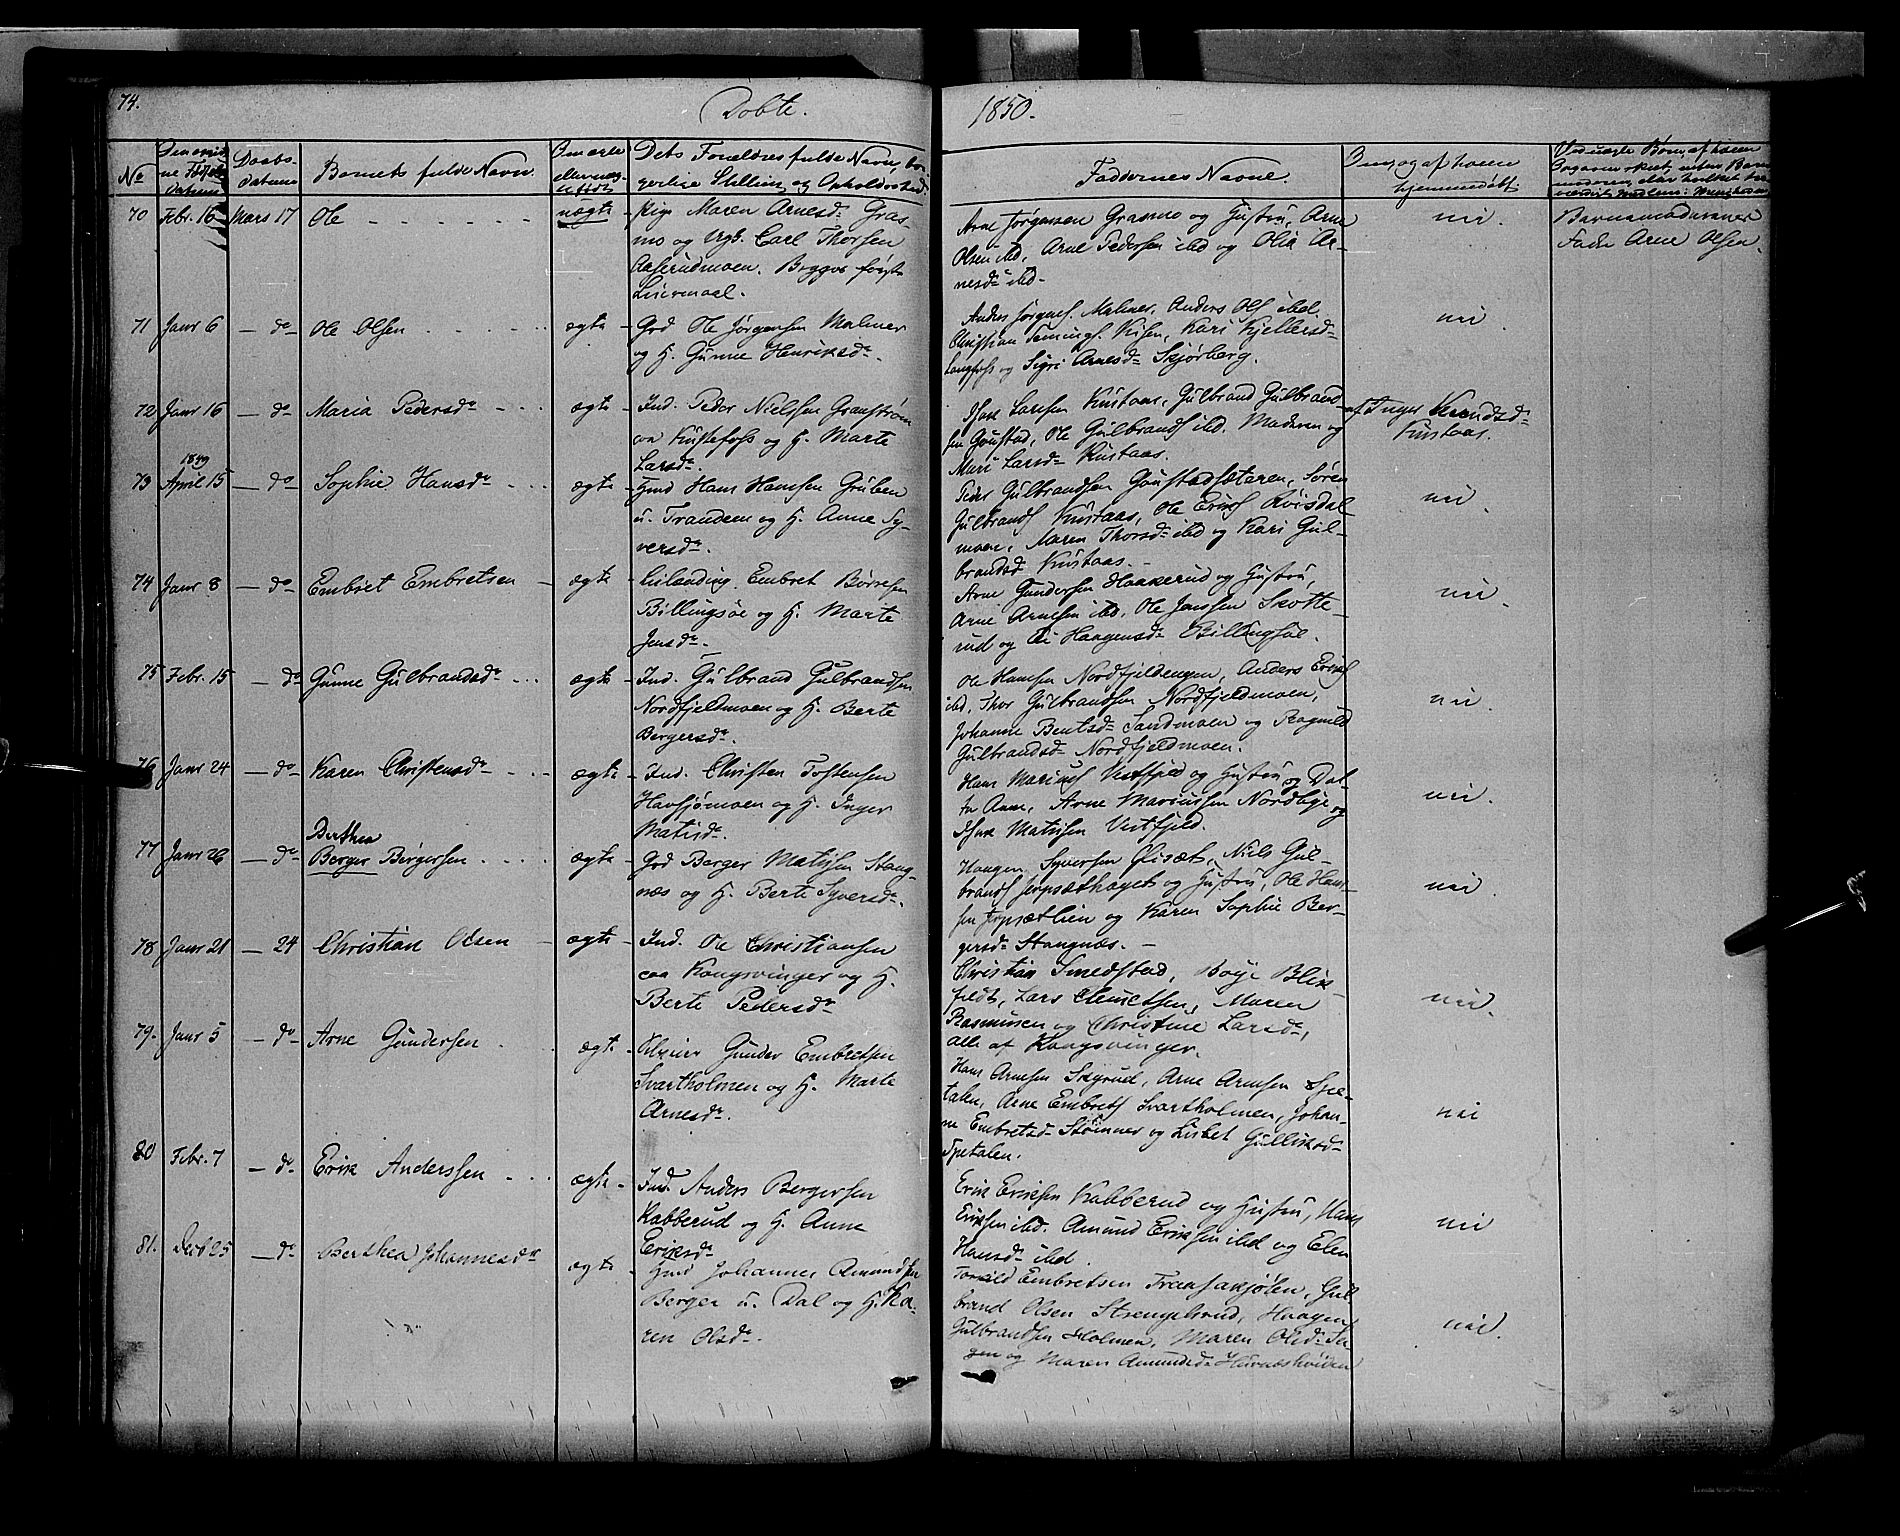 74.
Døbte.
1850.
No
Barnets fulde Navn.
Faddernes Navne.
hjemmedøbt
70 Febr. 16 Mars 17 Ole uægte Pige Maren Arnesd. Gras-
mo og Ugk. Carl Thorsen
Aaserudmoen. Begges første
Leiermaal.
Arne Jørgensen Grasmo og Hustru, Arne
Olsen ibd, Arne Pedersen ibd og Olia Ar-
nesd. ibd.
nei.
Barnemoderens
Fader Arne Olsen.
71 Janr 6 — do Ole Olsen ægte Grd Ole Jørgensen Malmer
og H. Gunne Henriksd.
Anders Jørgens. Malmer, Anders Ols. ibd.
Christian Kari Kjellersd.
Langfoss og Sigri Arnesd. Skjørberg.
nei.
72 Janr 16 — do Maria Pedersd. ægte Ind. Peder Nielssen Granstrøm
paa Kustefoss og H. Marte
Larsd.
Larsen Kustaas, Gulbrand Gulbrand-
sen Goustad, Ole Gulbrands. ibd. Moderen og
Mari Larsd. Kustaas.
af Inger
Kustaas.
73 1849 April 15 — do Sophie Hansd. ægte Hmd Hans Hansen Gruben
u. Trandem og H. Anne Sy-
versd.
Peder Gulbrandsen Goustadsæteren, Søren
Gulbrands. Kustaas, Ole Eriks. Roisdal-
moen, Maren Thorsd. ibd og Kari Gul-
brandsd Kustaas.
nei.
74 Janr 8 — do Embret Embretsen ægte Leilænding Embret Børresen
Billingsøe og H. Marte
Jensd.
Arne Gundersen Haakerud og Hustru,
Arne Arnesen ibd, Ole Jenssen Skotte-
rud og Haagensd. Billingsøe.
nei.
75 Febr. 15 — do Gunne Gulbrandsd. ægte Ind. Gulbrand Gulbrandsen
Nordfjeldmoen og H. Berte
Bergersd.
Ole Hansen Nordfjeldengen, Anders Eriks.
ibd, Thor Gulbrandsen Nordfjeldmoen,
Johanne Berntsd. Sandmoen og Ragnild
Gulbrandsd. Nordfjeldmoen.
nei.
76 Janr 24 — do Karen Christensd. ægte Ind. Christen Tostensen
Havsjømoen og H. Inger
Matisd.
Hans Marius. Vestfjeld og Hustru og Dat-
ter Anne, Arne Mariussen Nordbye og
Matisen Vestfjeld.
nei.
77 Janr 26 — do Berthea
Berger Bergersen ægte Grd Berger Matisen Stang-
næs og H. Berte Syversd.
Haagen Syversen Øisæt, Niels Gul-
brands. og Hustru, Ole Han-
sen og Karen Sophie Ber-
gersd. Stangnæs.
nei.
78 Janr 21 — 24 Christian Olsen ægte Ind. Ole Christiansen
paa Kongsvinger og H.
Berte Pedersd.
Christian Smedstad, Boye Blix-
feldt, Lars Clemetsen, Maren
Rasmussen og Christine Larsd.,
alle af Kongsvinger.
nei.
79. Janr 5 — do Arne Gundersen ægte Gunder Embretsen
Svartholmen og H. Marte
Arnesd.
Hans Arnesen Skyrud, Arne Arnesen Spe-
talen, Arne Embrets. Svartholmen, Johan-
ne Embretsd. Stømner og Lisbet Gulliksd.
Spetalen.
nei
80 Febr. 7 — do Erik Anderssen ægte Ind. Anders Bergersen
Kabberud og H. Anne
Eriksd.
Erik Eriksen Kabberud og Hustru, Hans
Eriksen ibd. Amund Eriksen ibd og Elen
Hansd. ibd
nei
81. Decb 25 — do Berthea Johannesd. ægte Hmd Johannes Amundsen
Berger u. Dal og H. Ka-
ren Olsd.
Embretsen Gul-
brand Olsen Strengelsrud, Haagen
Gulbrandsen Holmen, Maren Olsd.
og Maren Amundsd.
nei.